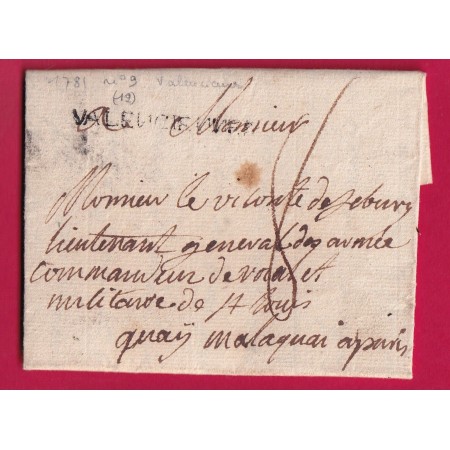 1781 n° 9 Valenciennes
(19)
VALENCIENNES
A Monsieur
Monsieur le viconte de sebury
lieutenant general des armée
commandeur de roial et
militaire de st louis
quaÿ malaquai a paris